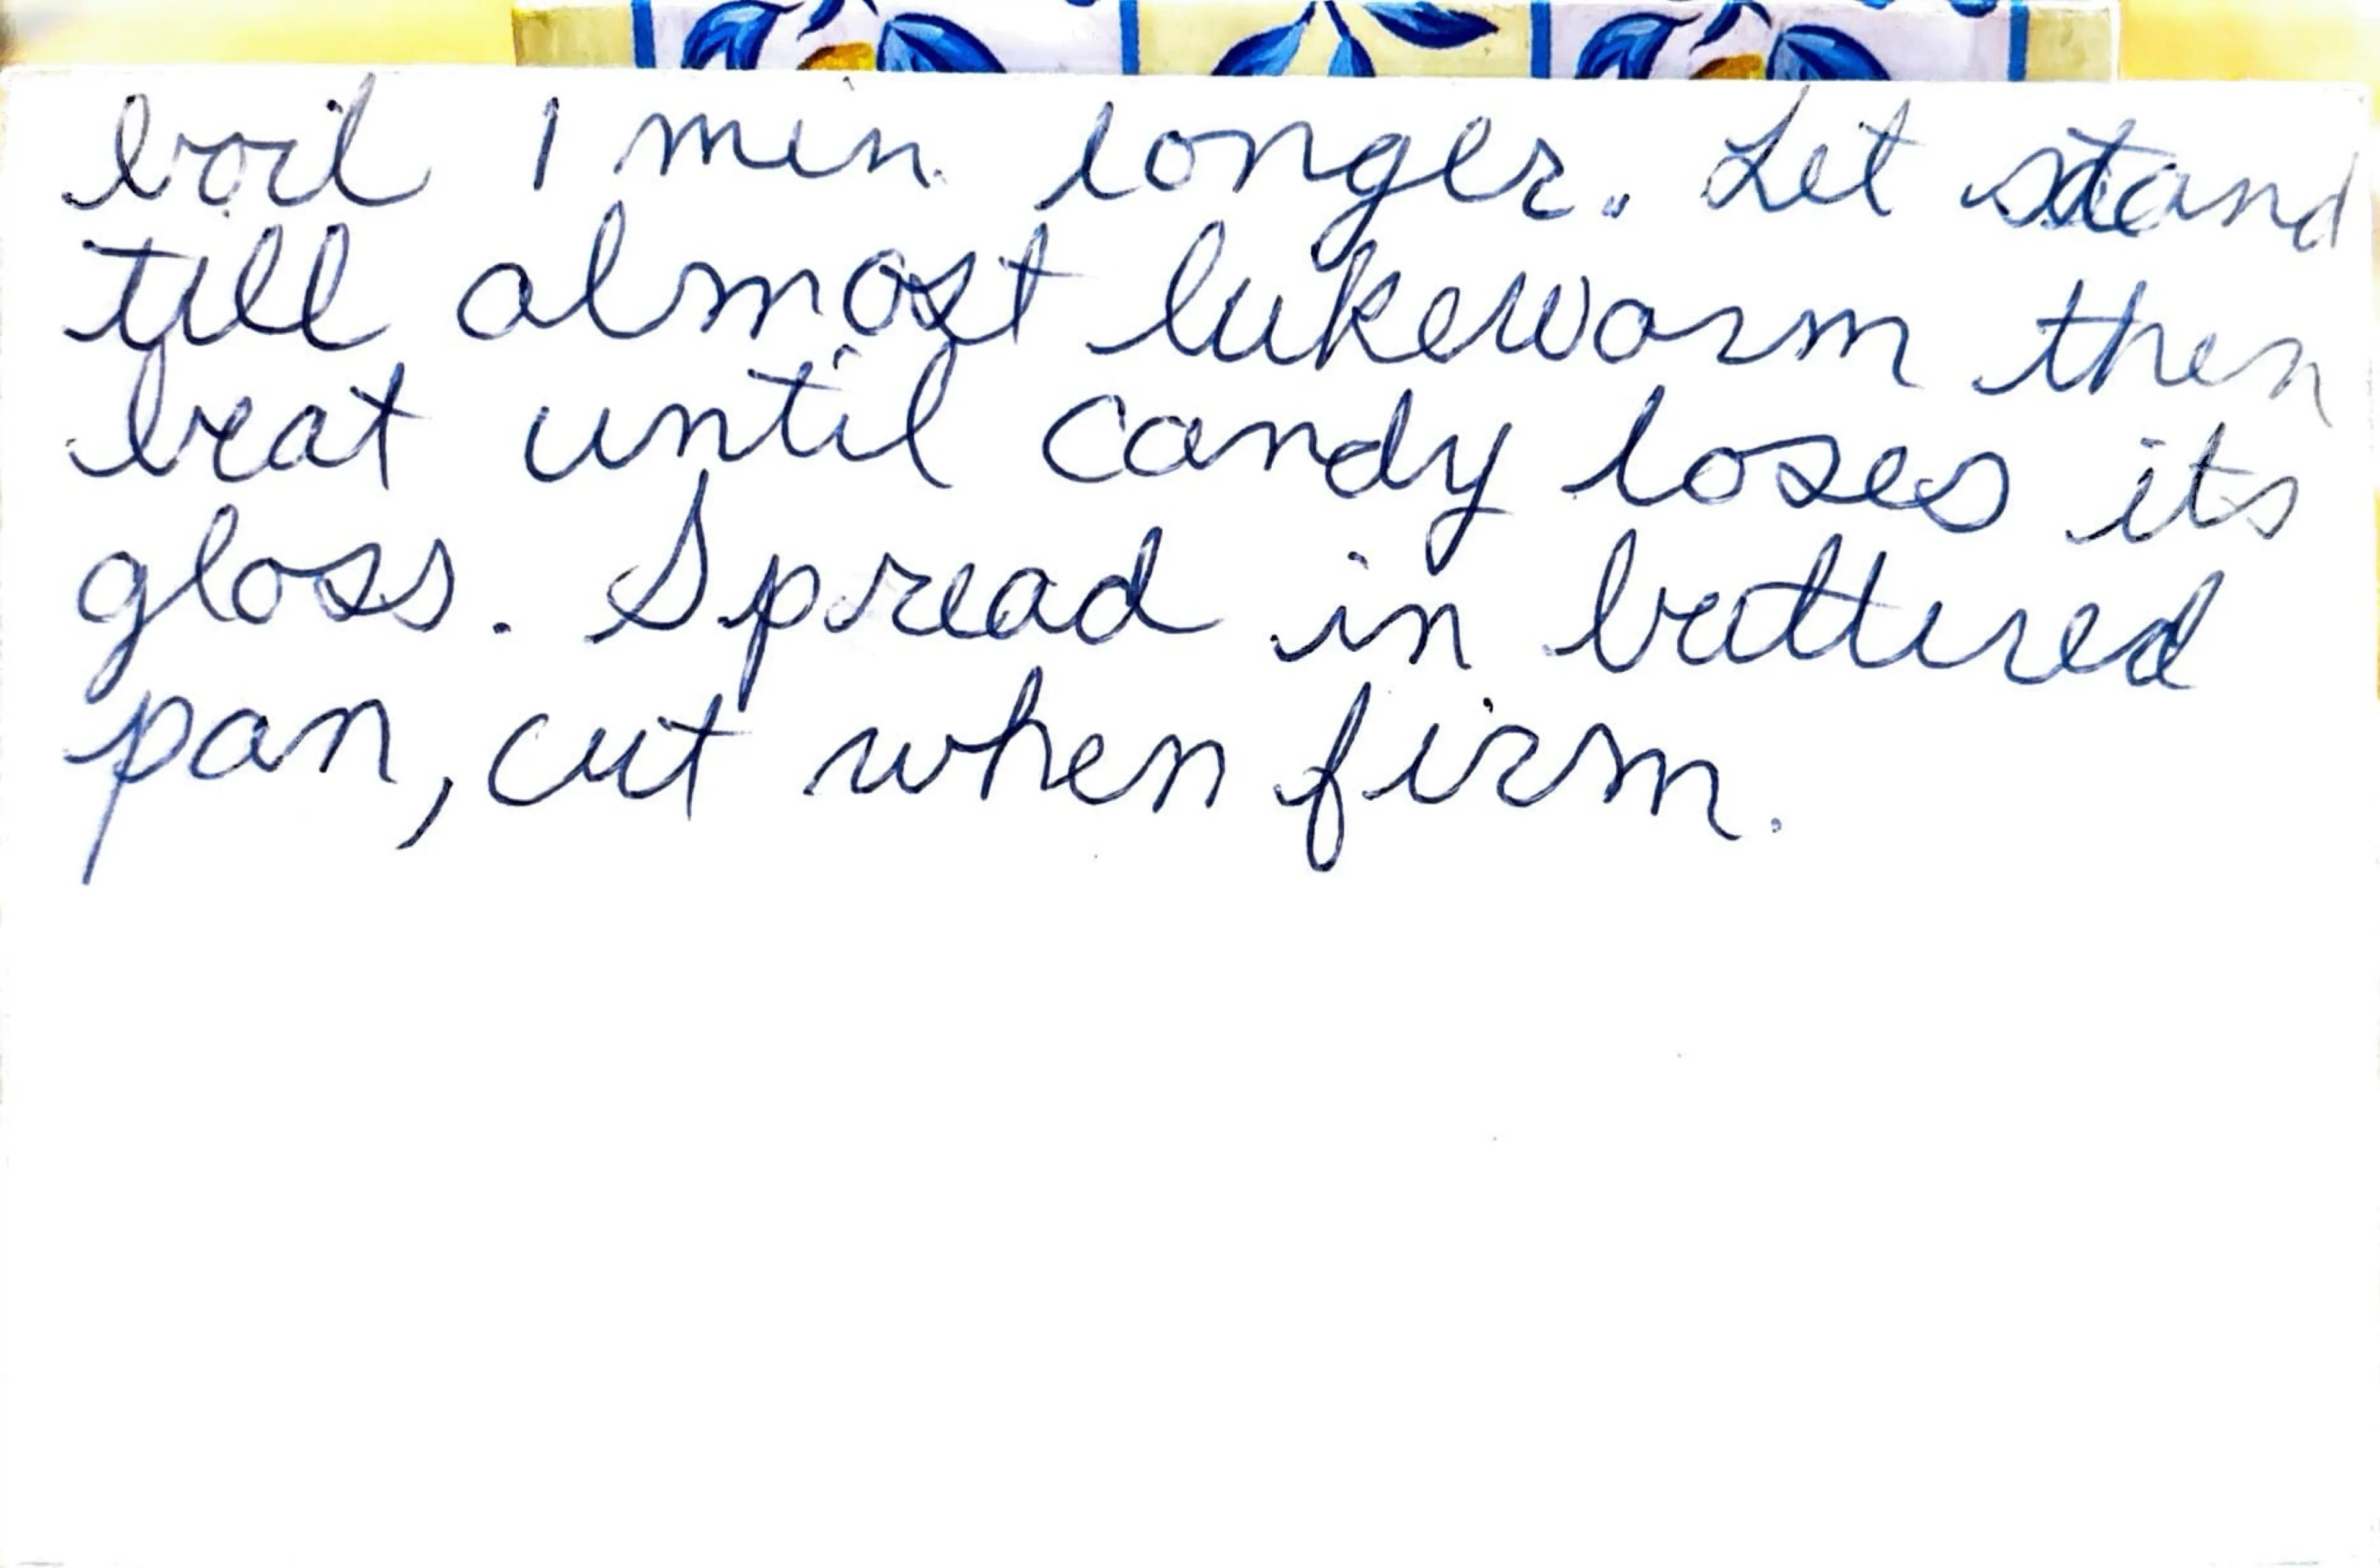 boil 1 min. longer. Let stand
till almost lukewarm then
beat until candy loses its
gloss. Spread in buttered
pan, cut when firm.